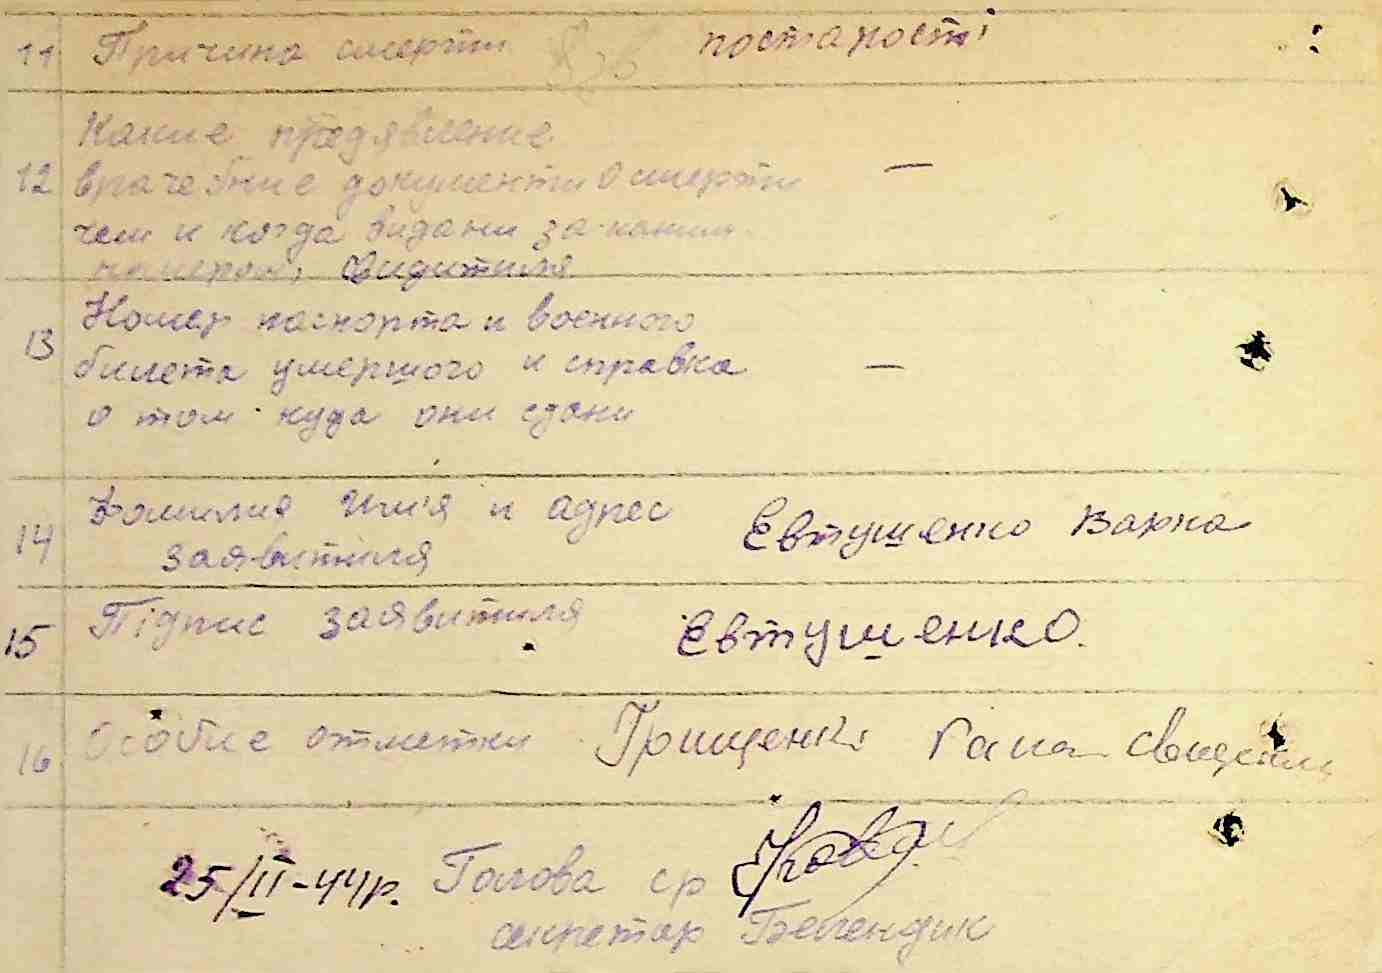 11 Причина смерти постарості
Какие предявление
12 врачебние документи о смерти
чем и когда видани за каким
номером, свидитиля
Номер паспорта и военного
13 билета умершого и справка —
о том куда они сдани
Фамилия Им'я и адрес
14 заявитиля Евтушенко Варка
15 Підпис заявитиля Евтушенко.
16 Особие отметки Грищенко Гапа свидетиль
25/II-44р. Голова ср
секретар